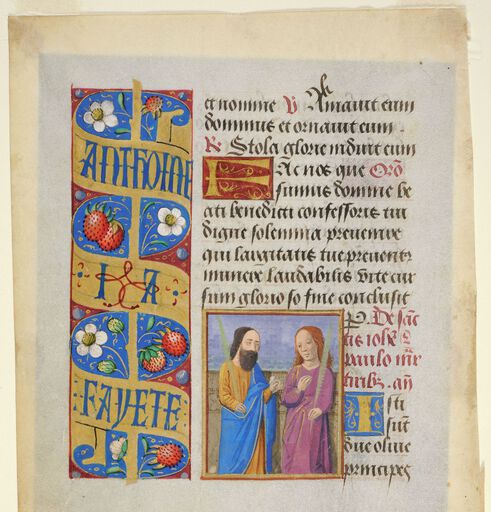 ANTHOINE
I A
FAYETE
et nomine ℣ Amauit eum
dominus et ornauit eum.
℟ Stola glorie induit eum
Fac nos que Oro
sumus domine be
ati benedicti confessoris tui
digne solemnia preuenire
qui largitatis tue preuenit
munere laudabilis vite cur
sum glorio so fine conclusit
P. De sanc
tis iohe
paulo mr
tiribꝫ. an
Isti
sunt
due oliue
principes